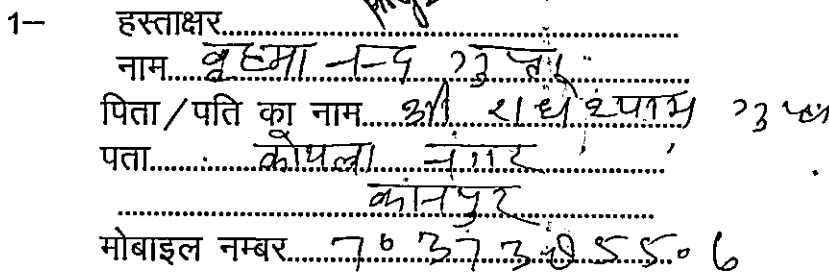 1– हस्ताक्षर
नाम वृहमा नन्द गुप्ता
पिता/पति का नाम श्री राधेश्याम गुप्ता
पता कोयला नगर
कानपुर
मोबाइल नम्बर